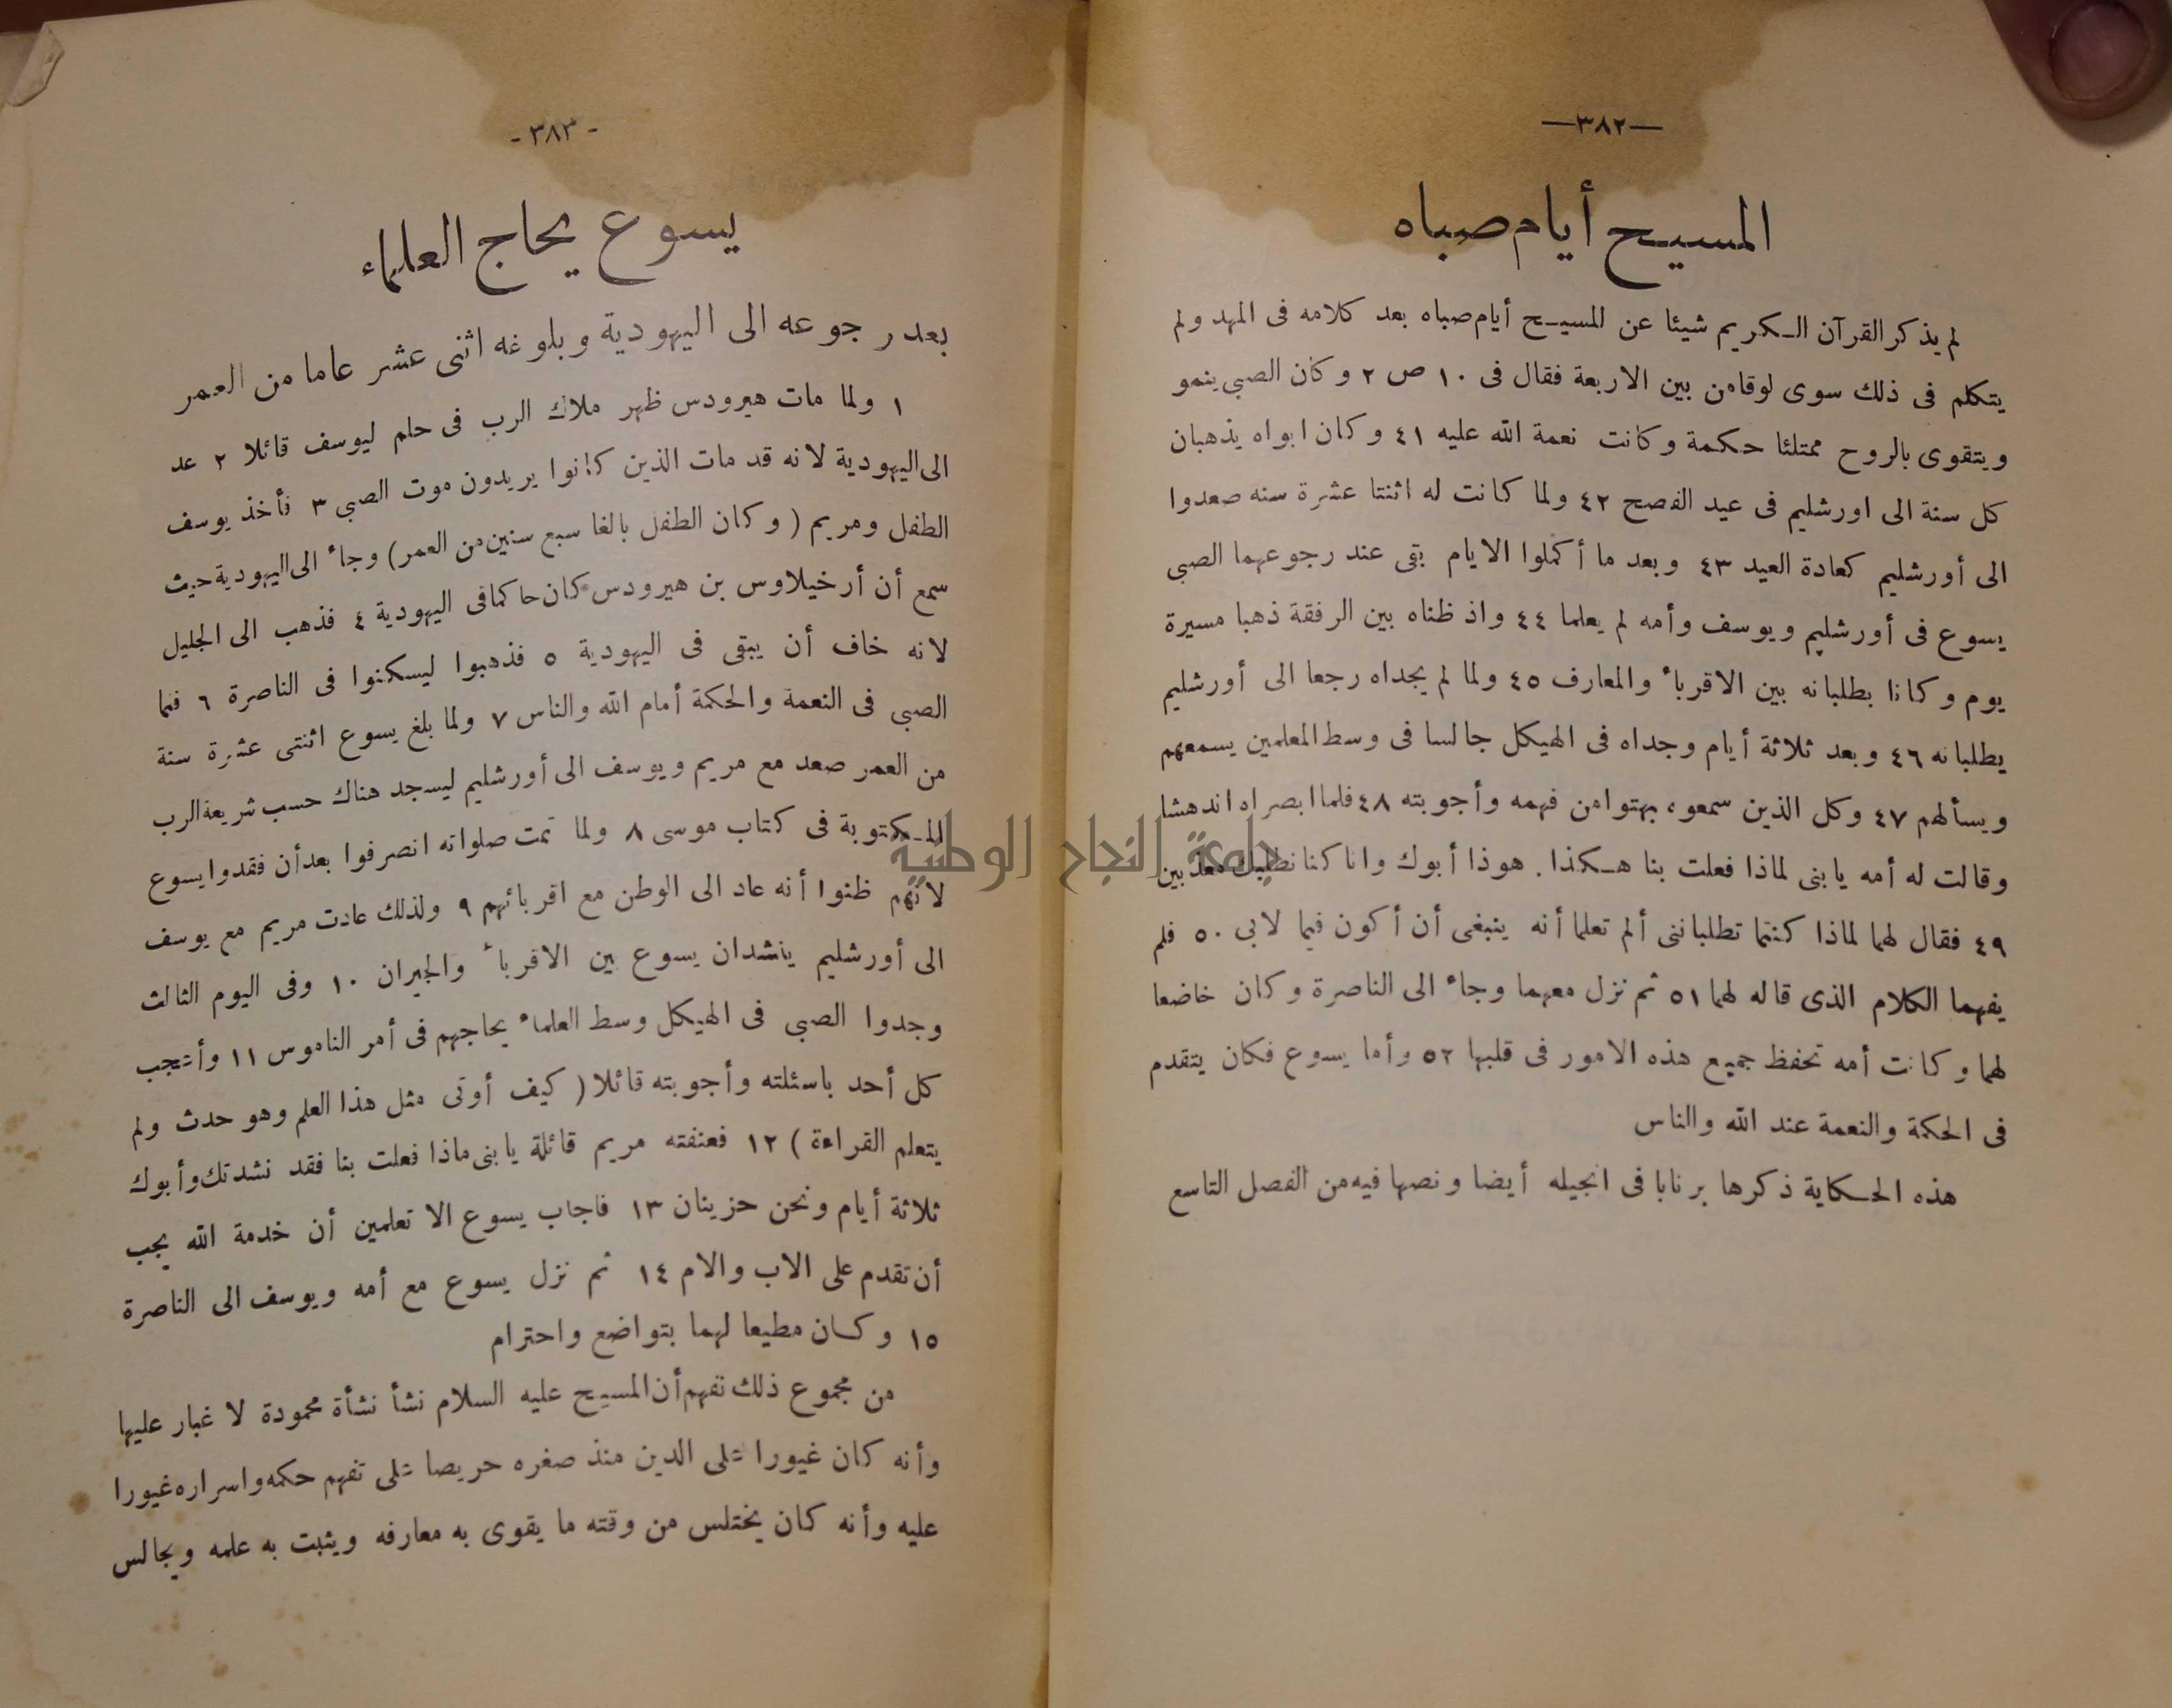 —٣٨٢—
المسيح أيام صباه
لم يذكر القرآن الكريم شيئا عن المسيح أيام صباه بعد كلامه فى المهد ولم
يتكلم فى ذلك سوى لوقا من بين الاربعة فقال فى ١٠ ص ٢ وكان الصبي ينمو
ويتقوى بالروح ممتلئا حكمة وكانت نعمة الله عليه ٤١ وكان ابواه يذهبان
كل سنة الى اورشليم فى عيد الفصح ٤٢ ولما كانت له اثنتا عشرة سنه صعدوا
الى أورشليم كعادة العيد ٤٣ وبعد ما أكملوا الايام بقى عند رجوعهما الصبى
يسوع فى أورشليم ويوسف وأمه لم يعلما ٤٤ واذ ظناه بين الرفقة ذهبا مسيرة
يوم وكانا يطلبانه بين الاقرباء والمعارف ٤٥ ولما لم يجداه رجعا الى أورشليم
يطلبانه ٤٦ وبعد ثلاثة أيام وجداه فى الهيكل جالسا فى وسط المعلمين يسمعهم
ويسألهم ٤٧ وكل الذين سمعوه بهتوا من فهمه وأجوبته ٤٨ فلما ابصراه اندهشا
وقالت له أمه يابنى لماذا فعلت بنا هكذا . هوذا أبوك وانا كنا نطلبك معذبين
٤٩ فقال لهما لماذا كنتما تطلباننى ألم تعلما أنه ينبغى أن أكون فيما لابى ٥٠ فلم
يفهما الكلام الذى قاله لهما ٥١ ثم نزل معهما وجاء الى الناصرة وكان خاضعا
لهما وكانت أمه تحفظ جميع هذه الامور فى قلبها ٥٢ وأما يسوع فكان يتقدم
فى الحكمة والنعمة عند الله والناس
هذه الحكاية ذكرها برنابا فى انجيله أيضا ونصها فيه من الفصل التاسع
- ٣٨٣ -
يسوع يحاج العلماء
بعد رجوعه الى اليهودية وبلوغه اثنى عشر عاما من العمر
١ ولما مات هيرودس ظهر ملاك الرب فى حلم ليوسف قائلا ٢ عد
الى اليهودية لانه قد مات الذين كانوا يريدون موت الصبى ٣ فأخذ يوسف
الطفل ومريم ( وكان الطفل بالغا سبع سنين من العمر ) وجاء الى اليهودية حيث
سمع أن أرخيلاوس بن هيرودس كان حاكما فى اليهودية ٤ فذهب الى الجليل
لانه خاف أن يبقى فى اليهودية ٥ فذهبوا ليسكنوا فى الناصرة ٦ فنما
الصبي فى النعمة والحكمة أمام الله والناس ٧ ولما بلغ يسوع اثنتى عشرة سنة
من العمر صعد مع مريم ويوسف الى أورشليم ليسجد هناك حسب شريعة الرب
المكتوبة فى كتاب موسى ٨ ولما تمت صلواته انصرفوا بعد أن فقدوا يسوع
لانهم ظنوا أنه عاد الى الوطن مع اقربائهم ٩ ولذلك عادت مريم مع يوسف
الى أورشليم ينشدان يسوع بين الاقرباء والجيران ١٠ وفى اليوم الثالث
وجدوا الصبي فى الهيكل وسط العلماء يحاجهم فى أمر الناموس ١١ وأعجب
كل أحد باسئلته وأجوبته قائلا ( كيف أوتى مثل هذا العلم وهو حدث ولم
يتعلم القراءة ) ١٢ فعنفته مريم قائلة يابنى ماذا فعلت بنا فقد نشدتك وأبوك
ثلاثة أيام ونحن حزينان ١٣ فاجاب يسوع الا تعلمين أن خدمة الله يجب
أن تقدم على الاب والام ١٤ ثم نزل يسوع مع أمه ويوسف الى الناصرة
١٥ وكان مطيعا لهما بتواضع واحترام
من مجموع ذلك تفهم أن المسيح عليه السلام نشأ نشأة محمودة لا غبار عليها
وأنه كان غيورا على الدين منذ صغره حريصا على تفهم حكمه واسراره غيورا
عليه وأنه كان يختلس من وقته ما يقوى به معارفه ويثبت به علمه ويجالس
جامعة النجاح الوطنية